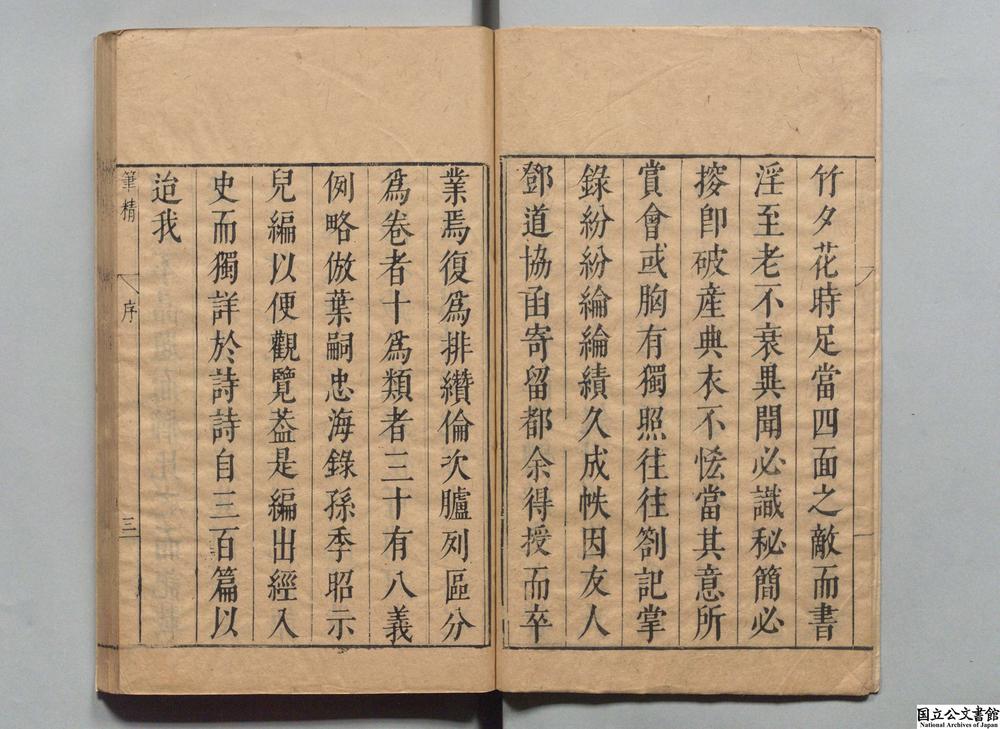 竹夕花時足當四面之敵而書
淫至老不衰異聞必識秘簡必
搜卽破產典衣不恡當其意所
賞會或胸有獨照往往劄記掌
錄紛紛綸綸績久成帙因友人
鄧道協函寄留都余得授而卒
業焉復爲排纘倫次臚列區分
爲卷者十爲類者三十有八義
例略倣葉嗣忠海錄孫李昭示
兒編以便觀覽葢是編出經入
史而獨詳於詩詩自三百篇以
迨我
筆精
序
三
国立公文書館
National Archives of Japan